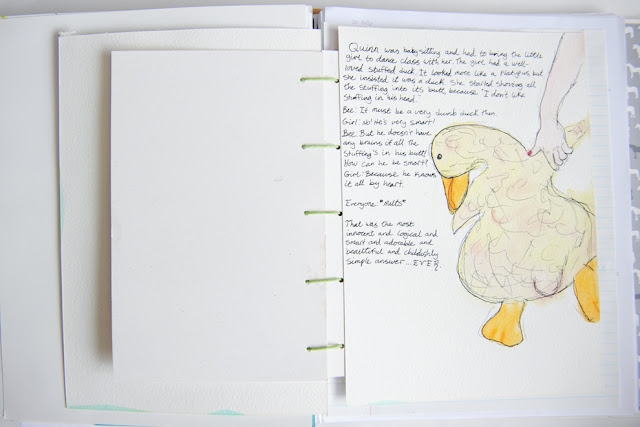 Quinn was babysitting and had to bring the little
girl to dance class with her. The girl had a well-
loved stuffed duck. It looked more like a Platypus but
she insisted it was a duck. She started shoving all
the stuffing into its butt, because "I don't like
stuffing in his head."
Bee: It must be a very dumb duck then.
Girl: No! He's very smart!
Bee: But he doesn't have
any brains if all the
stuffing's in his butt!
How can he be smart?
Girl: Because he knows
it all by heart.
Everyone: *Melts*
That was the most
innocent and logical and
smart and adorable and
beautiful and childishly
simple answer... EVER.